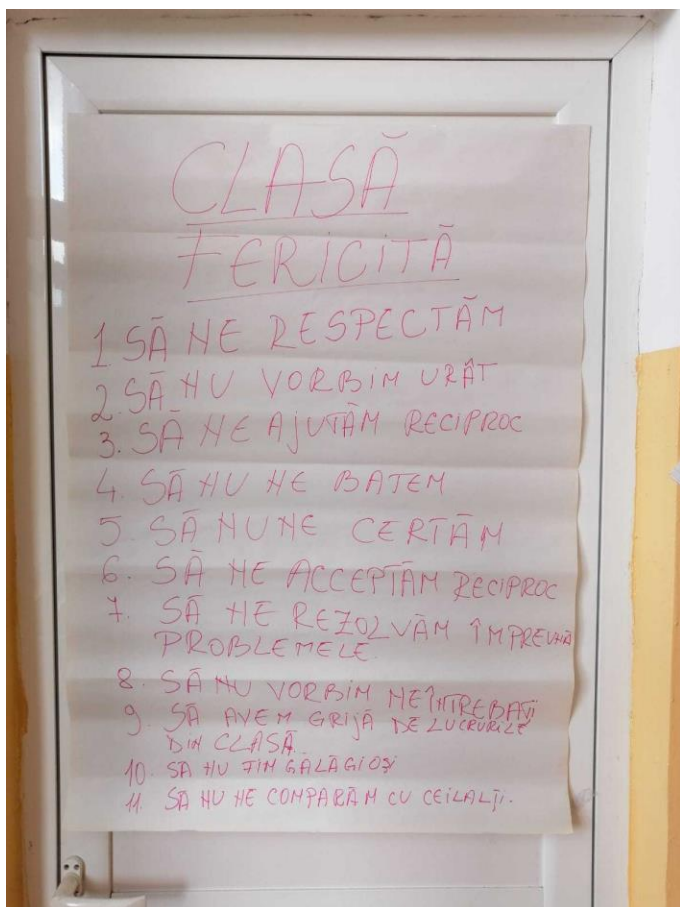 CLASĂ
FERICITĂ
1 SĂ NE RESPECTĂM
2. SĂ NU VORBIM URÂT
3. SĂ NE AJUTĂM RECIPROC
4. SĂ NU NE BATEM
5 SĂ NU NE CERTĂM
6. SĂ NE ACCEPTĂM RECIPROC
7. SĂ NE REZOLVĂM ÎMPREUNĂ
PROBLEMELE
8. SĂ NU VORBIM NEÎNTREBAȚI
9. SĂ AVEM GRIJĂ DE LUCRURILE
DIN CLASĂ
10. SĂ NU FIM GĂLĂGIOȘI
11. SĂ NU NE COMPARĂM CU CEILALȚI.